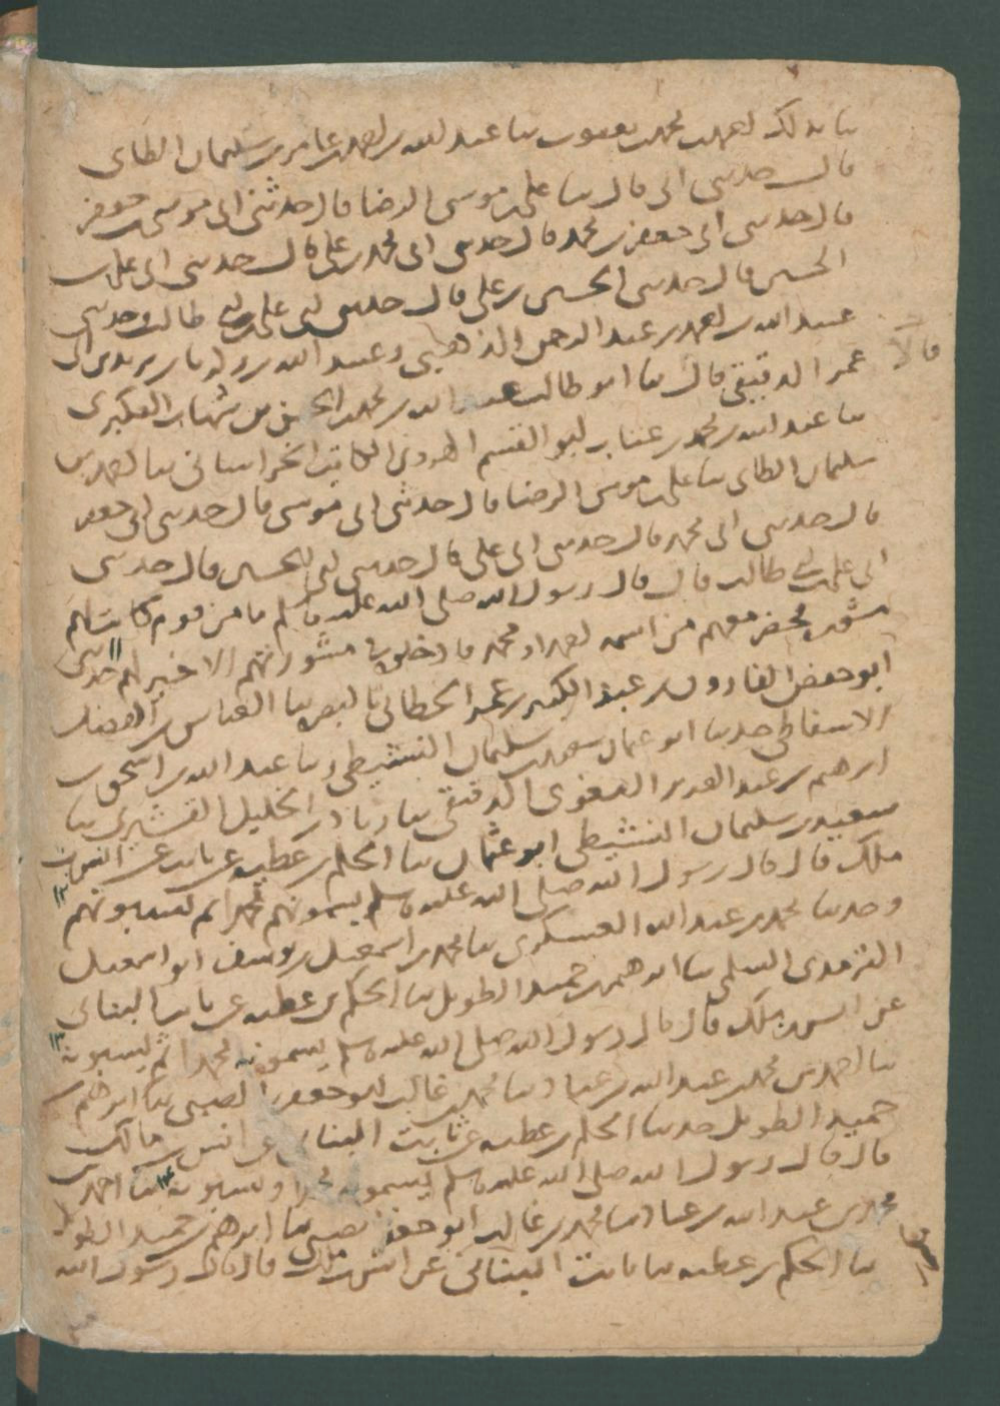 ثنا بذلك احمد بن محمد بن يعقوب ثنا عبد الله بن احمد بن عامر بن سليمان الطائي
قال حدثني ابي قال ثنا علي بن موسى الرضا قال حدثني ابي موسى بن جعفر
قال حدثني ابي جعفر بن محمد قال حدثني ابي محمد بن علي قال حدثني ابي علي بن
الحسين قال حدثني الحسين بن علي قال حدثني ابي علي بن ابي طالب وحدثني
عبد الله بن احمد بن عبد الرحمن الذهبي وعبيد الله
قالا
عمر الدقيقي قال ثنا ابو طالب عبد الله بن محمد بن شهاب العكبري
ثنا عبد الله بن محمد بن عتاب ابو القسم الهروي الكاتب الخراساني ثنا احمد بن
سليمان الطائي ثنا علي بن موسى الرضا قال حدثني ابي موسى قال حدثني ابي جعفر
قال حدثني ابي محمد قال حدثني ابي علي قال حدثني ابي الحسين قال حدثني
ابي علي بن ابي طالب قال قال رسول الله صلى الله عليه وسلم ما من قوم كانت لهم
مشورة فحضر معهم من اسمه احمد او محمد فادخلوه في مشورتهم الا خير لهم حدثني
ابو حفص الفاروق بن عبد الكبير بن عمر الخطابي بالبصرة ثنا العباس بن الفضل
الاسفاطي حدثنا ابو عثمان سعيد بن سليمان النشيطي وثنا عبد الله بن اسحق بن
ابرهيم بن عبد العزيز البغوي الدقيقي ثنا زياد بن الخليل القشيري ثنا
سعيد بن سليمان النشيطي ابو عثمان ثنا الحكم بن عطية عن ثابت عن انس بن
ملك قال قال رسول الله صلى الله عليه وسلم يسمونهم محمدا ثم يسبونهم ١٢
وحدثنا محمد بن عبد الله العسكري ثنا محمد بن اسمعيل بن يوسف ابو اسمعيل
الترمذي السلمي ثنا ابرهيم بن حميد الطويل ثنا الحكم بن عطية عن ثابت البناني
عن انس بن ملك قال قال رسول الله صلى الله عليه وسلم يسمونه محمدا ثم يسبونه ١٣
ثنا احمد بن محمد بن عبد الله بن عباد ثنا محمد بن غالب ابو جعفر الضبي ثنا ابرهيم بن
حميد الطويل حدثنا الحكم بن عطية عن ثابت البناني عن انس بن مالك
قال قال رسول الله صلى الله عليه وسلم يسمونه محمدا ويسبونه ١٤ ثنا احمد بن
محمد بن عبد الله بن عباد ثنا محمد بن غالب ابو جعفر الضبي ثنا ابرهيم بن حميد الطويل
ثنا الحكم بن عطية ثنا ثابت البناني عن انس بن ملك قال قال رسول الله